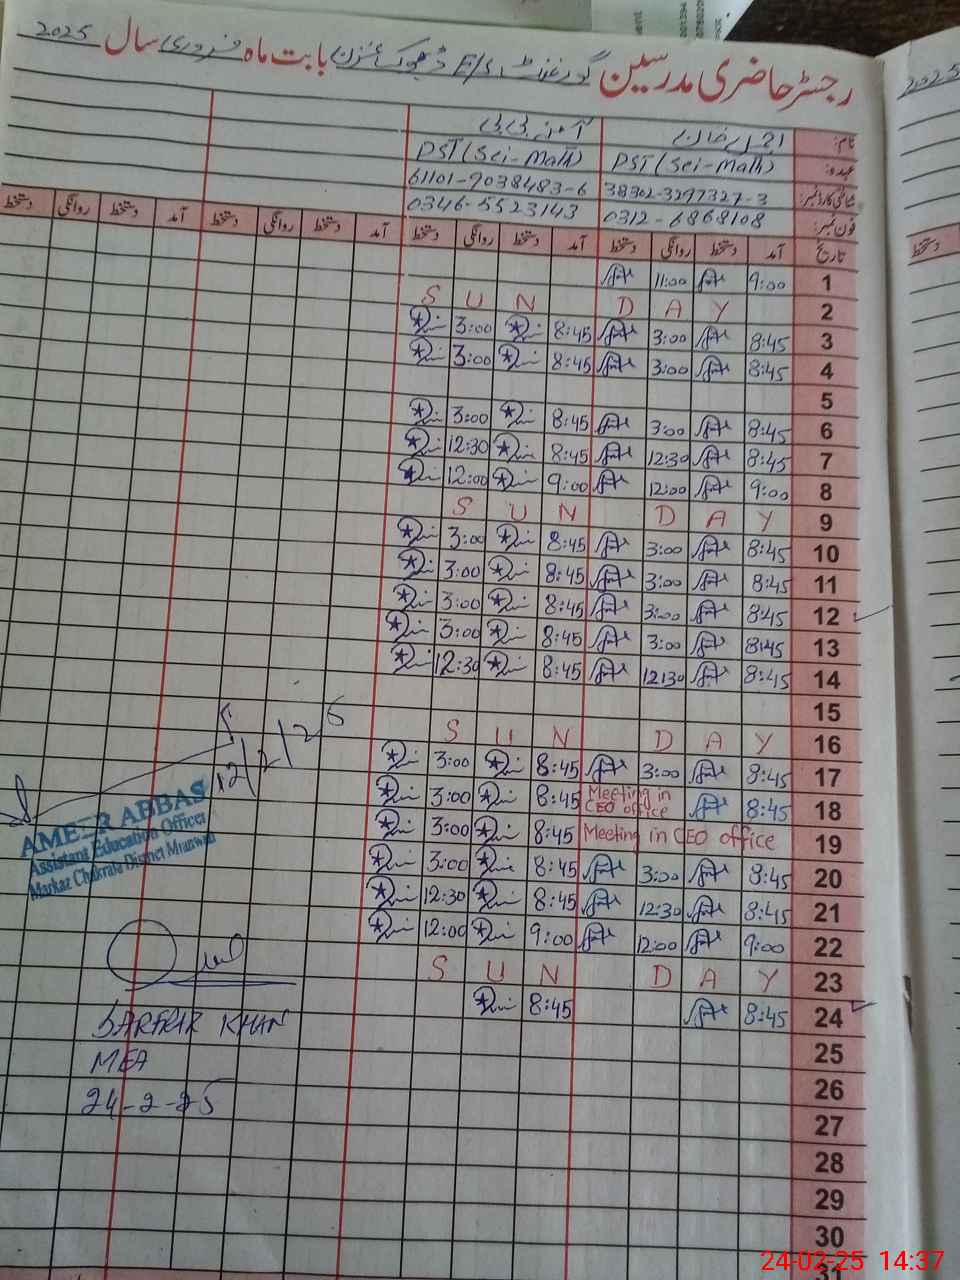 رجسٹر حاضری مدرسین گورنمنٹ E/S ڈھوک بابت ماہ فروری سال 2025
نام:
آمنہ بی بی
عہدہ: PST (Sci-Math) PST (Sci-Math)
شناختی کارڈ نمبر: 38302-3297327-3 61101-9038483-6
فون نمبر: 0312-6868108 0346-5523143
تاریخ آمد دستخط روانگی دستخط آمد دستخط روانگی دستخط آمد دستخط روانگی دستخط آمد دستخط روانگی دستخط
1 9:00 11:00
2 S U N D A Y
3 8:45 3:00 8:45 3:00
4 8:45 3:00 8:45 3:00
5
6 8:45 3:00 8:45 3:00
7 8:45 12:30 8:45 12:30
8 9:00 12:00 9:00 12:00
9 S U N D A Y
10 8:45 3:00 8:45 3:00
11 8:45 3:00 8:45 3:00
12 8:45 3:00 8:45 3:00
13 8:45 3:00 8:45 3:00
14 8:45 12:30 8:45 12:30
15
16 S U N D A Y
17 8:45 3:00 8:45 3:00
18 8:45 Meeting in CEO office 8:45 3:00
19 Meeting in CEO office 8:45 3:00
20 8:45 3:00 8:45 3:00
21 8:45 12:30 8:45 12:30
22 9:00 12:00 9:00 12:00
23 S U N D A Y
24 8:45 8:45
25
26
27
28
29
30
31
12/2/25
AMEER ABBAS
Assistant Education Officer
Markaz Chakrala District Mianwali
KHAN
MEA
24-2-25
2025
دستخط
24-02-25 14:37